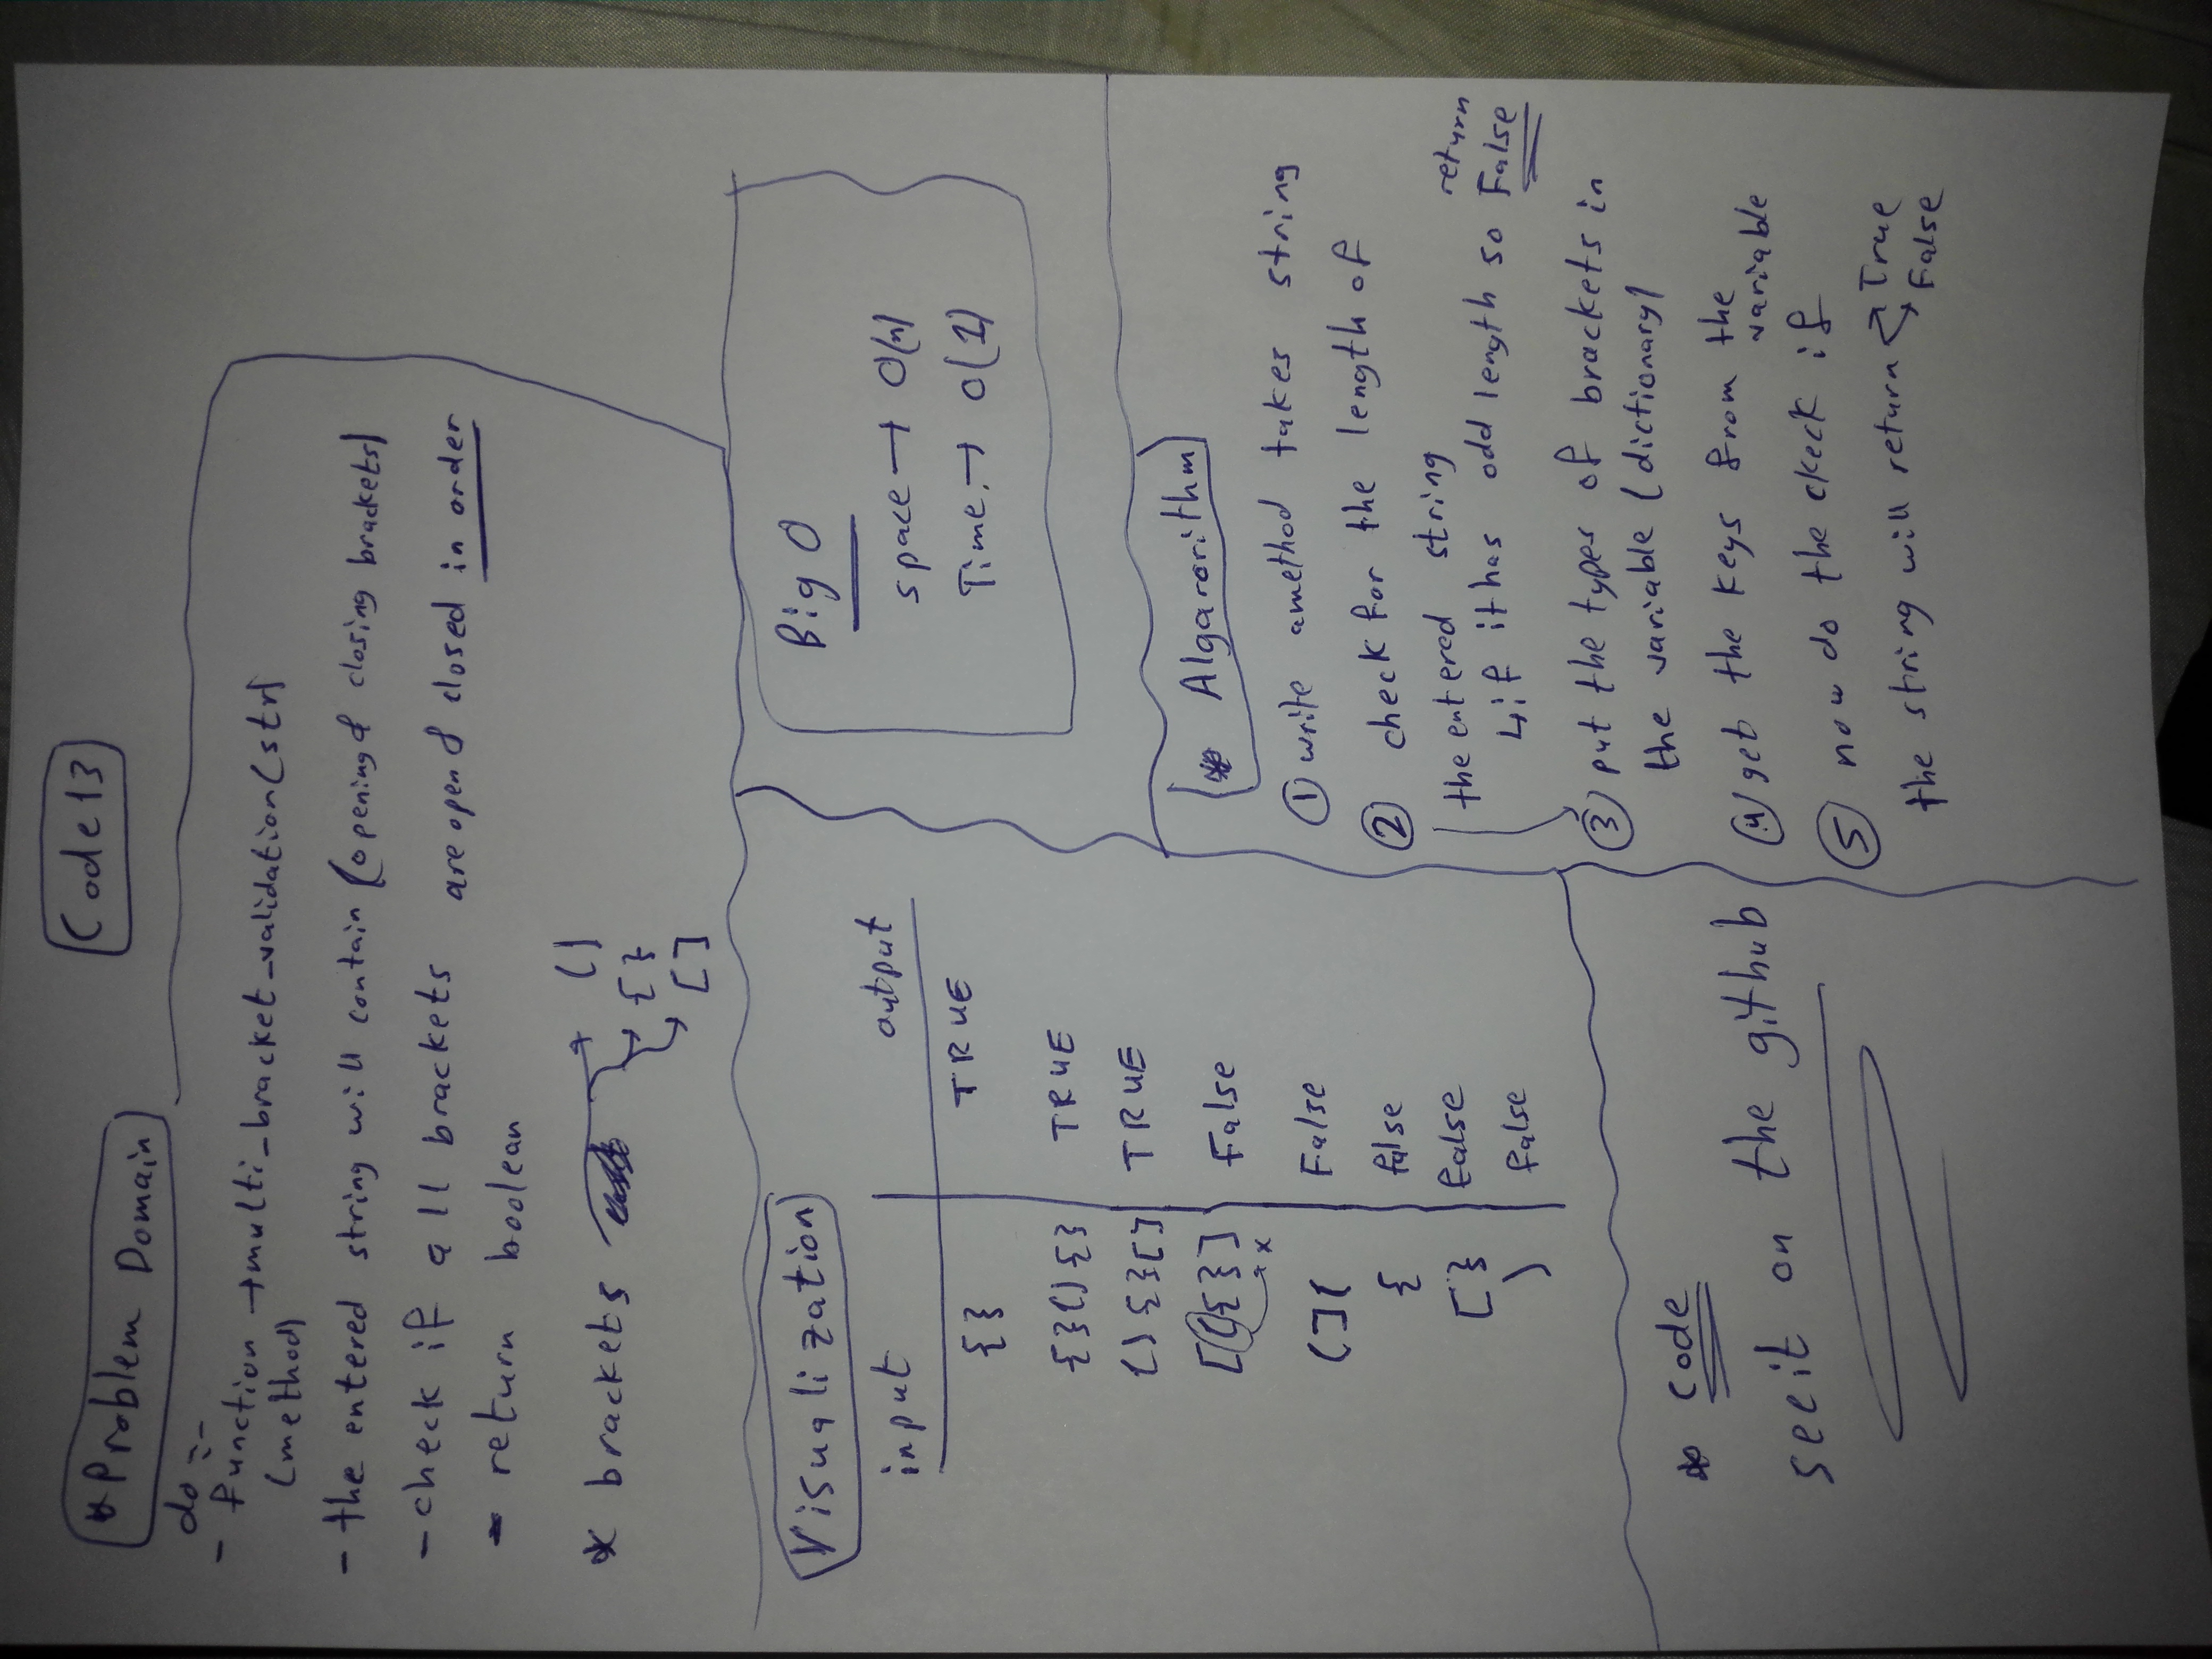 Code 13
* Problem Domain
do :-
- function → multi_bracket_validation(str)
(method)
- the entered string will contain (opening & closing brackets)
- check if all brackets are open & closed in order
- return boolean
* brackets
()
{}
[]
Visualization
input output
{} TRUE
{}(){} TRUE
(){}[] TRUE
[({}] False
x
(]( False
{ false
[} False
) False
* Code
see it on the github
Big O
space → O(n)
Time → O(1)
* Algarorithm
① write a method takes string
② check for the length of
the entered string
↳ if it has odd length so return
False
③ put the types of brackets in
the variable (dictionary)
④ get the keys from the
variable
⑤ now do the ckeck if
the string will return True
False